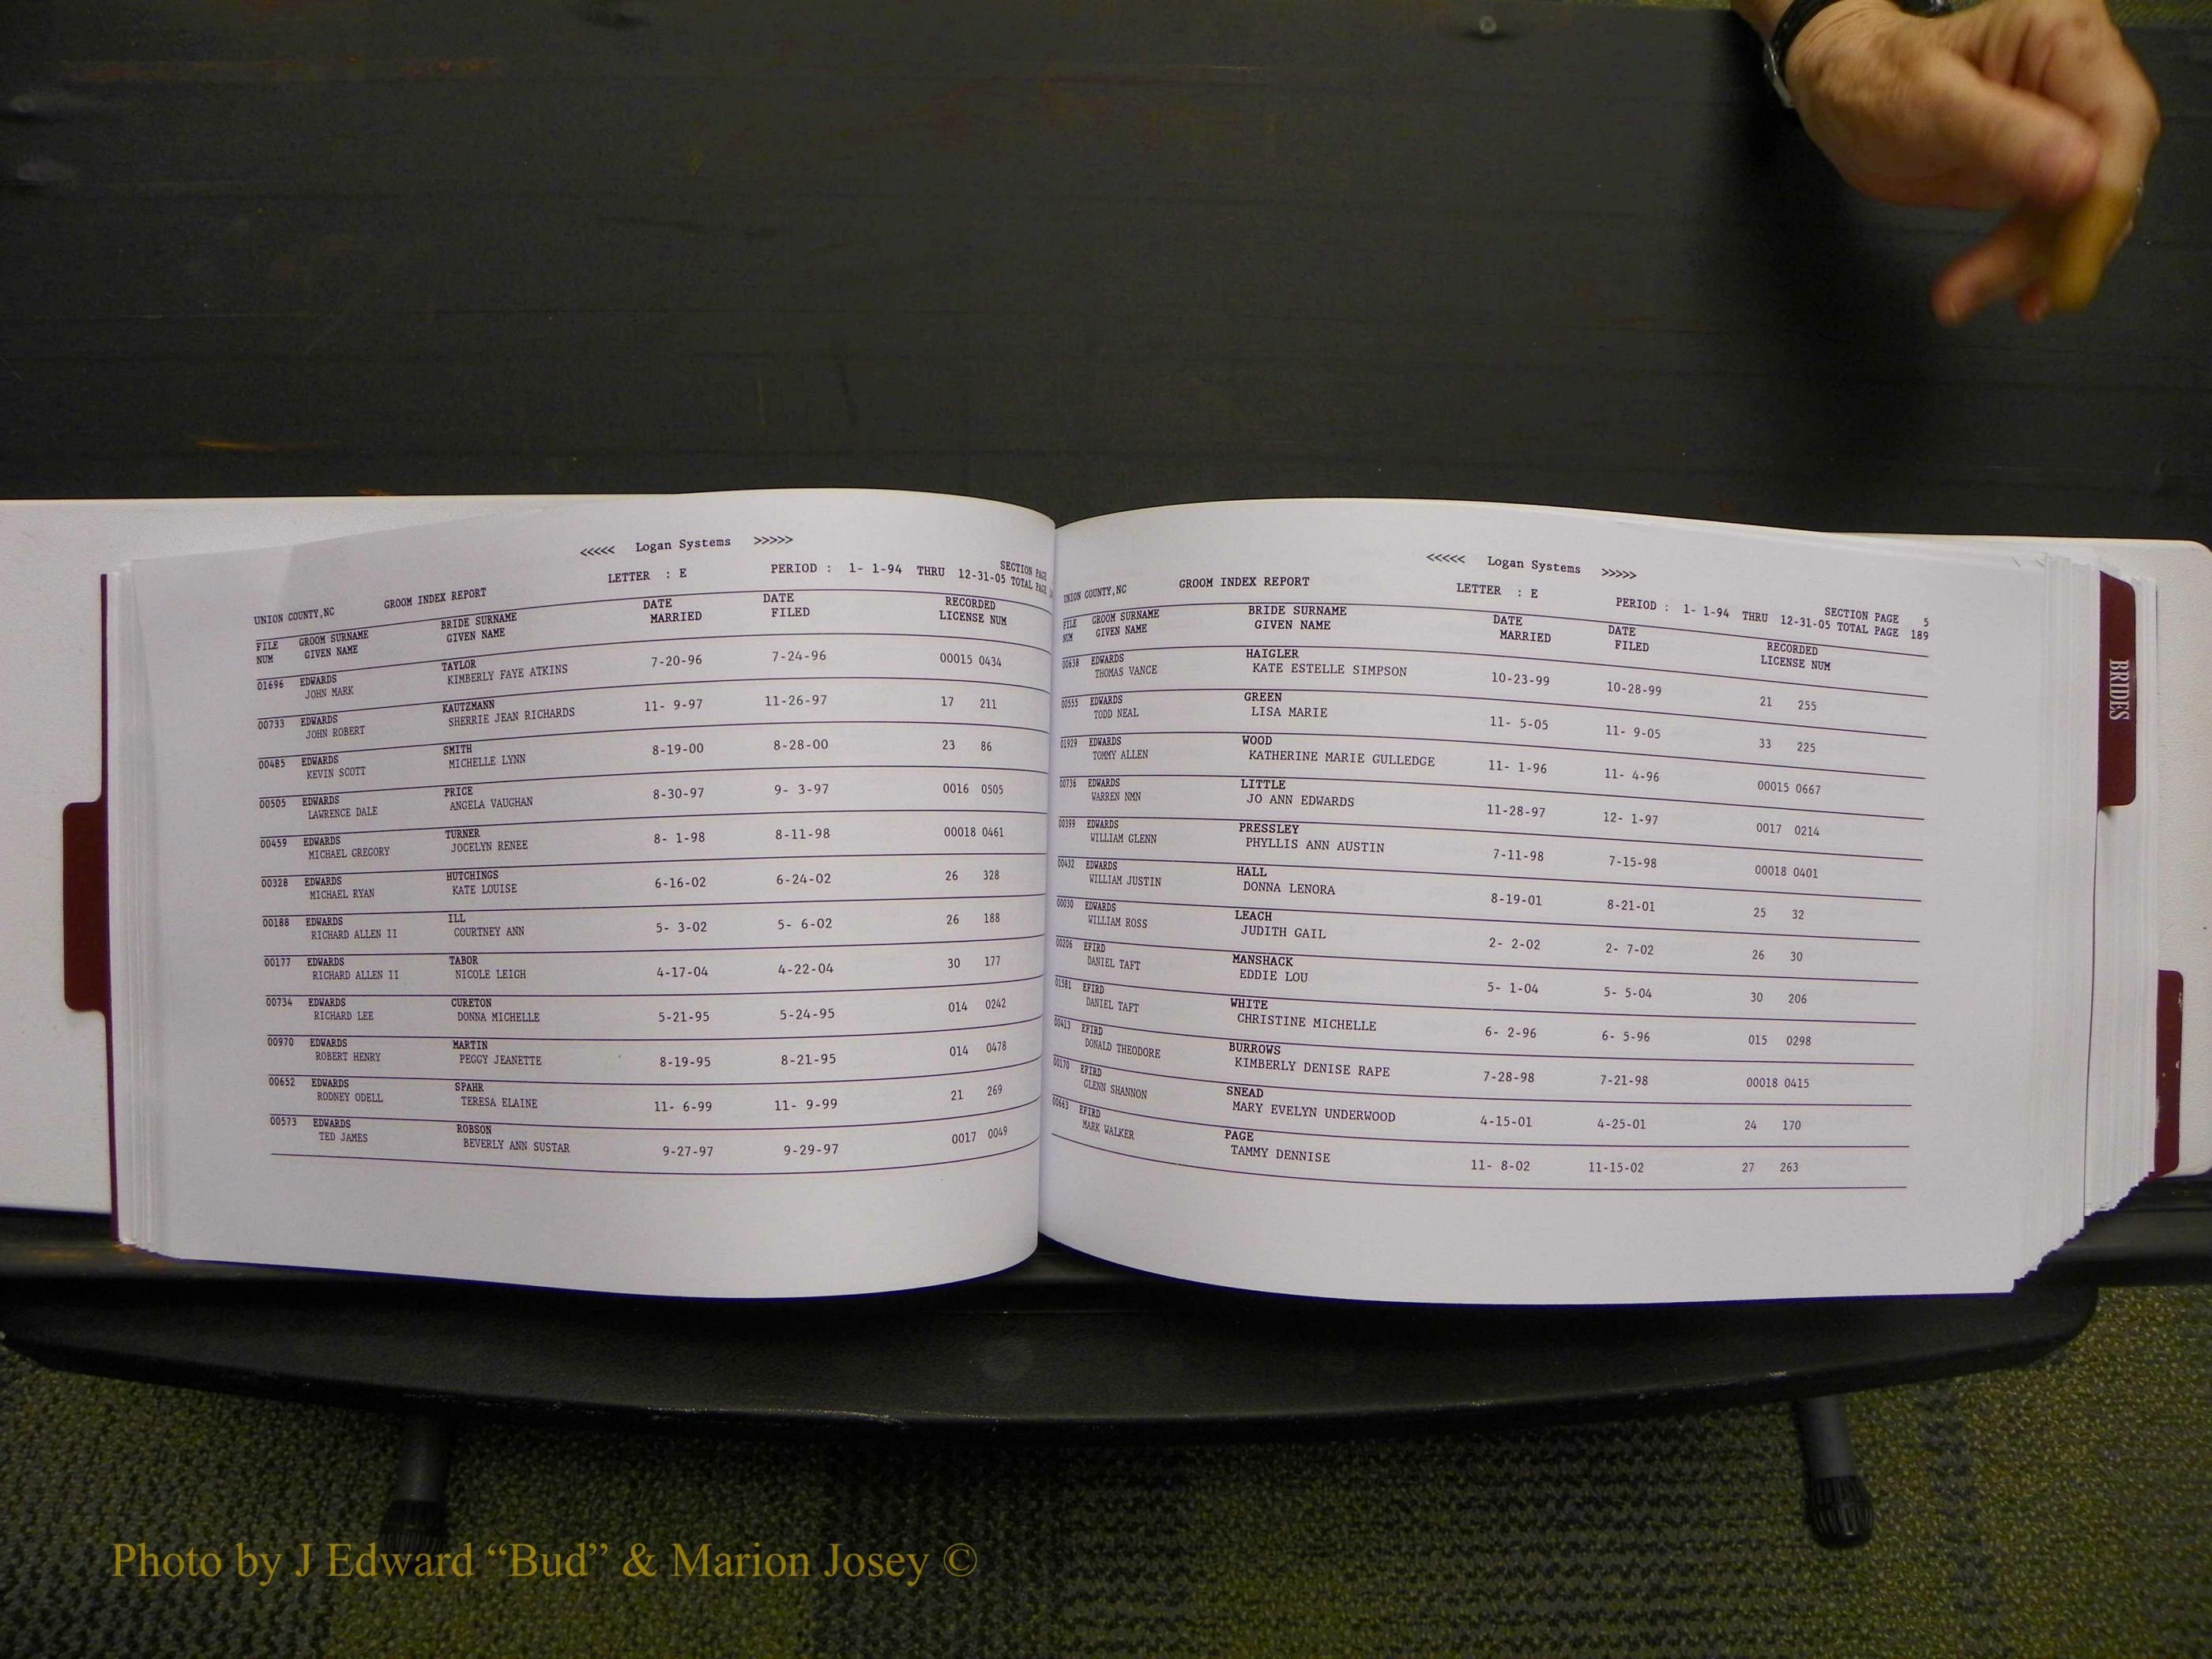 <<<<< Logan Systems >>>>>
UNION COUNTY,NC GROOM INDEX REPORT LETTER : E PERIOD : 1- 1-94 THRU 12-31-05 SECTION PAGE
TOTAL PAGE
FILE GROOM SURNAME BRIDE SURNAME DATE DATE RECORDED
NUM GIVEN NAME GIVEN NAME MARRIED FILED LICENSE NUM
01696 EDWARDS TAYLOR 7-20-96 7-24-96 00015 0434
JOHN MARK KIMBERLY FAYE ATKINS
00733 EDWARDS KAUTZMANN 11- 9-97 11-26-97 17 211
JOHN ROBERT SHERRIE JEAN RICHARDS
00485 EDWARDS SMITH 8-19-00 8-28-00 23 86
KEVIN SCOTT MICHELLE LYNN
00505 EDWARDS PRICE 8-30-97 9- 3-97 0016 0505
LAWRENCE DALE ANGELA VAUGHAN
00459 EDWARDS TURNER 8- 1-98 8-11-98 00018 0461
MICHAEL GREGORY JOCELYN RENEE
00328 EDWARDS HUTCHINGS 6-16-02 6-24-02 26 328
MICHAEL RYAN KATE LOUISE
00188 EDWARDS ILL 5- 3-02 5- 6-02 26 188
RICHARD ALLEN II COURTNEY ANN
00177 EDWARDS TABOR 4-17-04 4-22-04 30 177
RICHARD ALLEN II NICOLE LEIGH
00734 EDWARDS CURETON 5-21-95 5-24-95 014 0242
RICHARD LEE DONNA MICHELLE
00970 EDWARDS MARTIN 8-19-95 8-21-95 014 0478
ROBERT HENRY PEGGY JEANETTE
00652 EDWARDS SPAHR 11- 6-99 11- 9-99 21 269
RODNEY ODELL TERESA ELAINE
00573 EDWARDS ROBSON 9-27-97 9-29-97 0017 0049
TED JAMES BEVERLY ANN SUSTAR
<<<<< Logan Systems >>>>>
UNION COUNTY,NC GROOM INDEX REPORT LETTER : E PERIOD : 1- 1-94 THRU 12-31-05 SECTION PAGE 5
TOTAL PAGE 189
FILE GROOM SURNAME BRIDE SURNAME DATE DATE RECORDED
NUM GIVEN NAME GIVEN NAME MARRIED FILED LICENSE NUM
00638 EDWARDS HAIGLER 10-23-99 10-28-99 21 255
THOMAS VANCE KATE ESTELLE SIMPSON
00555 EDWARDS GREEN 11- 5-05 11- 9-05 33 225
TODD NEAL LISA MARIE
01929 EDWARDS WOOD 11- 1-96 11- 4-96 00015 0667
TOMMY ALLEN KATHERINE MARIE GULLEDGE
00736 EDWARDS LITTLE 11-28-97 12- 1-97 0017 0214
WARREN NMN JO ANN EDWARDS
00399 EDWARDS PRESSLEY 7-11-98 7-15-98 00018 0401
WILLIAM GLENN PHYLLIS ANN AUSTIN
00432 EDWARDS HALL 8-19-01 8-21-01 25 32
WILLIAM JUSTIN DONNA LENORA
00030 EDWARDS LEACH 2- 2-02 2- 7-02 26 30
WILLIAM ROSS JUDITH GAIL
00206 EFIRD MANSHACK 5- 1-04 5- 5-04 30 206
DANIEL TAFT EDDIE LOU
01581 EFIRD WHITE 6- 2-96 6- 5-96 015 0298
DANIEL TAFT CHRISTINE MICHELLE
00413 EFIRD BURROWS 7-28-98 7-21-98 00018 0415
DONALD THEODORE KIMBERLY DENISE RAPE
00170 EFIRD SNEAD 4-15-01 4-25-01 24 170
GLENN SHANNON MARY EVELYN UNDERWOOD
00663 EFIRD PAGE 11- 8-02 11-15-02 27 263
MARK WALKER TAMMY DENNISE
BRIDES
Photo by J Edward “Bud” & Marion Josey ©